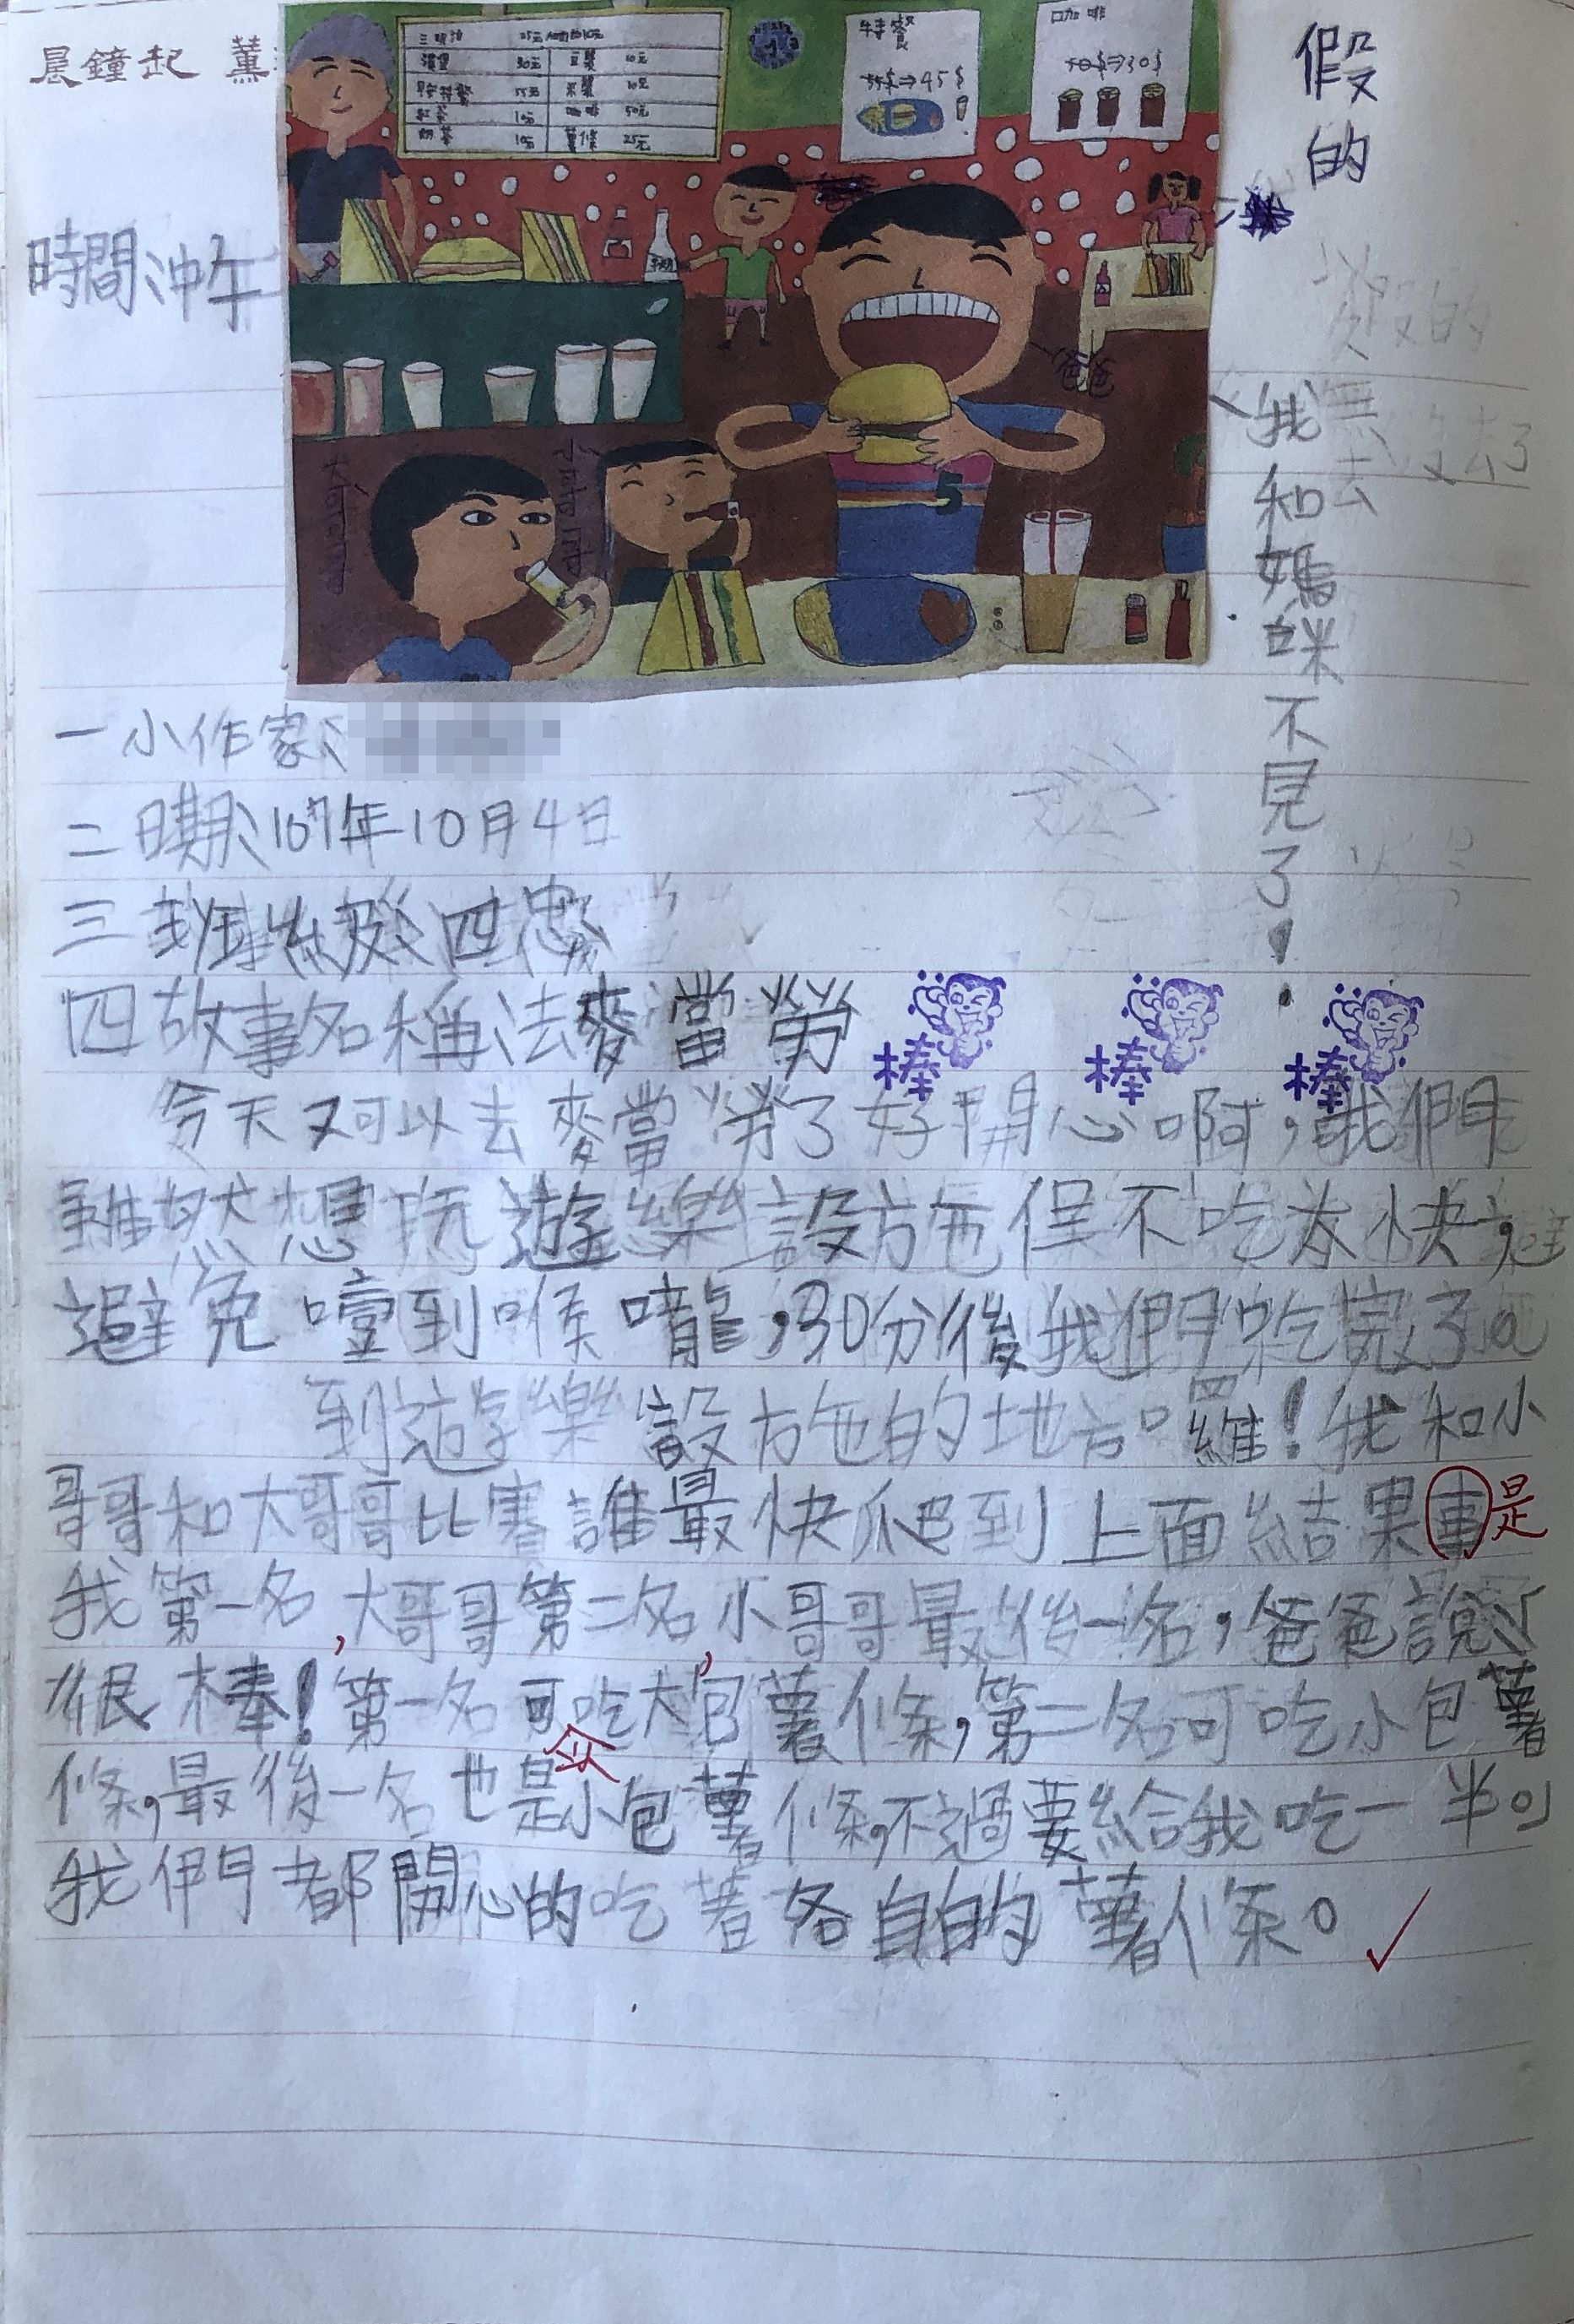 晨鐘起 薰
三明治 25元
漢堡 30元 豆漿 10元
早安特餐 55元 米漿 10元
紅茶 10元 咖啡 50元
奶茶 10元 薯條 25元
1
特餐
55$⇒45$
咖啡
50$⇒30$
假的
時間:中午
爸爸
5
我和媽咪不見了!
一小作家:
二日期:107年10月4日
三班級:四忠
四故事名稱:去麥當勞
棒 棒 棒
今天又可以去麥當勞了好開心啊,我們
雖然想玩遊樂設施但不吃太快,
避免噎到喉嚨,30分後我們吃完了。
到遊樂設施的地方囉!我和小
哥哥和大哥哥比賽誰最快爬到上面結果事是
我第一名,大哥哥第二名,小哥哥最後一名,爸爸說
很棒!第一名可吃大包薯條,第二名可吃小包薯
條,最後一名也是小包薯條,不過要給我吃一半。
我們都開心的吃著各自的薯條。